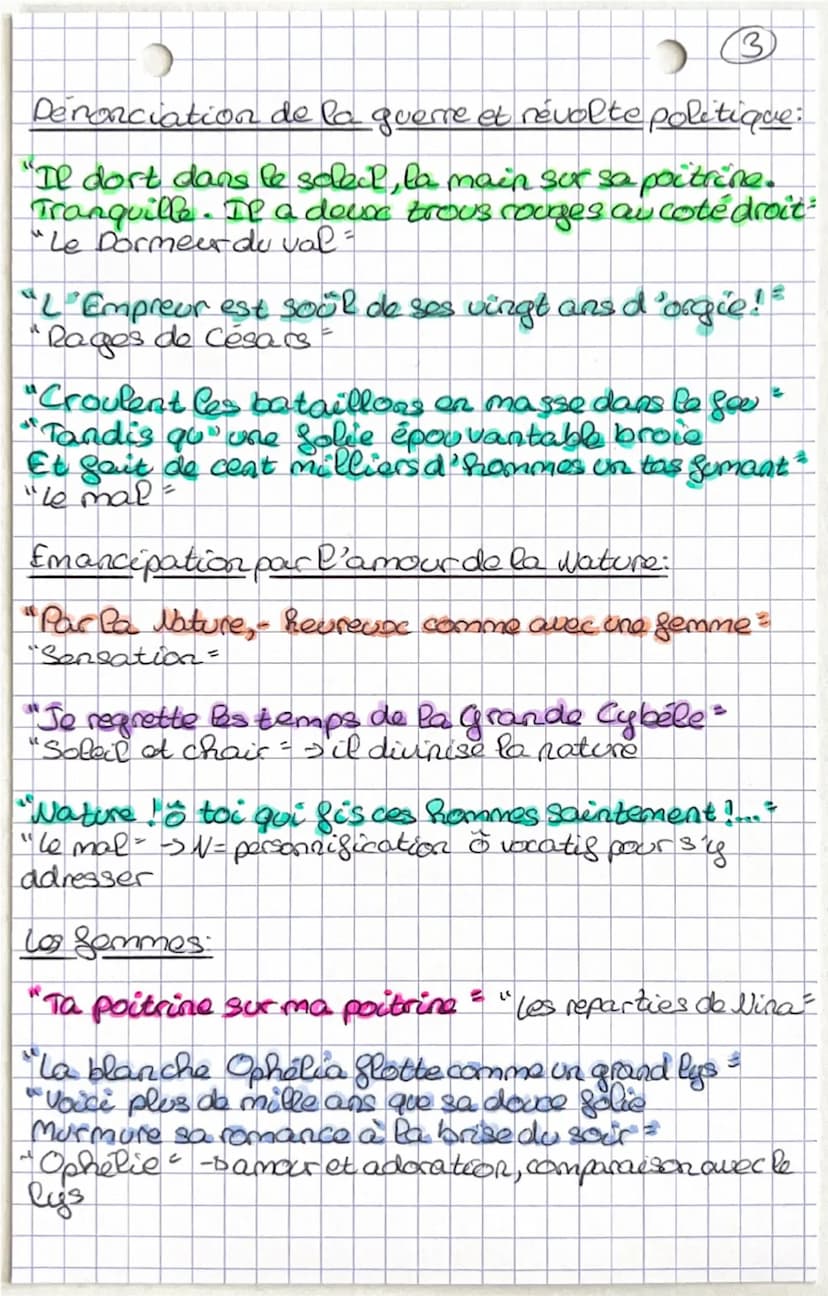 3
Dénonciation de la guerre et révolte politique:
"Il dort dans le soleil, la main sur sa poitrine.
Tranquille. Il a deux trous rouges au coté droit"
"Le Dormeur du val"
"L'Empreur est soûl de ses vingt ans d'orgie!"
"Rages de Césars"
"Croulent les bataillons en masse dans le feu"
"Tandis qu'une folie épouvantable broie
Et fait de cent milliers d'hommes un tas fumant"
"Le mal"
Emancipation par l'amour de la Nature:
"Par la Nature,- heureux comme avec une femme"
"Sensation"
"Je regrette les temps de la Grande Cybèle"
"Soleil et chair" → il divinise la nature
"Nature ! ô toi qui fis ces hommes saintement !..."
"Le mal" → N = personnification ô vocatif pour s'y
adresser
Les femmes:
"Ta poitrine sur ma poitrine" "Les reparties de Nina"
"La blanche Ophélia flotte comme un grand lys"
"Voici plus de mille ans que sa douce folie
Murmure sa romance à la brise du soir"
"Ophélie" → amour et adoration, comparaison avec le
lys